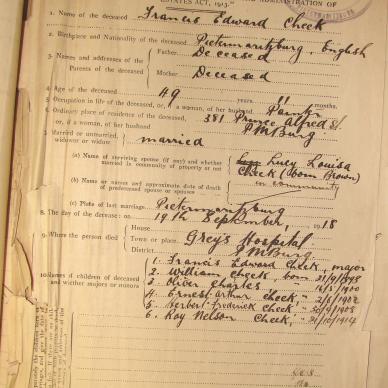 ADMINISTRATION OF
ESTATES ACT, 1913.
1. Name of the deceased Francis Edward Cheek
2. Birthplace and Nationality of the deceased Pietermaritzburg, English
3. Names and addresses of the Parents of the deceased
Father Deceased
Mother Deceased
4. Age of the deceased 49 years 11 months.
5. Occupation in life of the deceased, or, if a woman, of her husband
6. Ordinary place of residence of the deceased, or, if a woman, of her husband 381 Prince Alfred St
PMBurg
7. Married or unmarried, widower or widow married
(a) Name of surviving spouse (if any) and whether married in community of property or not Lucy Louisa
Cheek (born Brown)
in community
(b) Name or names and approximate date of death of predeceased spouse or spouses
(c) Place of last marriage. Pietermaritzburg
8. The day of the decease: on 19th September, 1918
9. Where the person died
House
Town or place Grey's Hospital
District PMBurg
10. Names of children of deceased and whether majors or minors
1. Francis Edward Cheek, major
2. William Cheek, born
3. Oliver Charles
4. Ernest Arthur Cheek, " 1902
5. Herbert Frederick Cheek "
6. Roy Nelson Cheek, " 21/10/1914